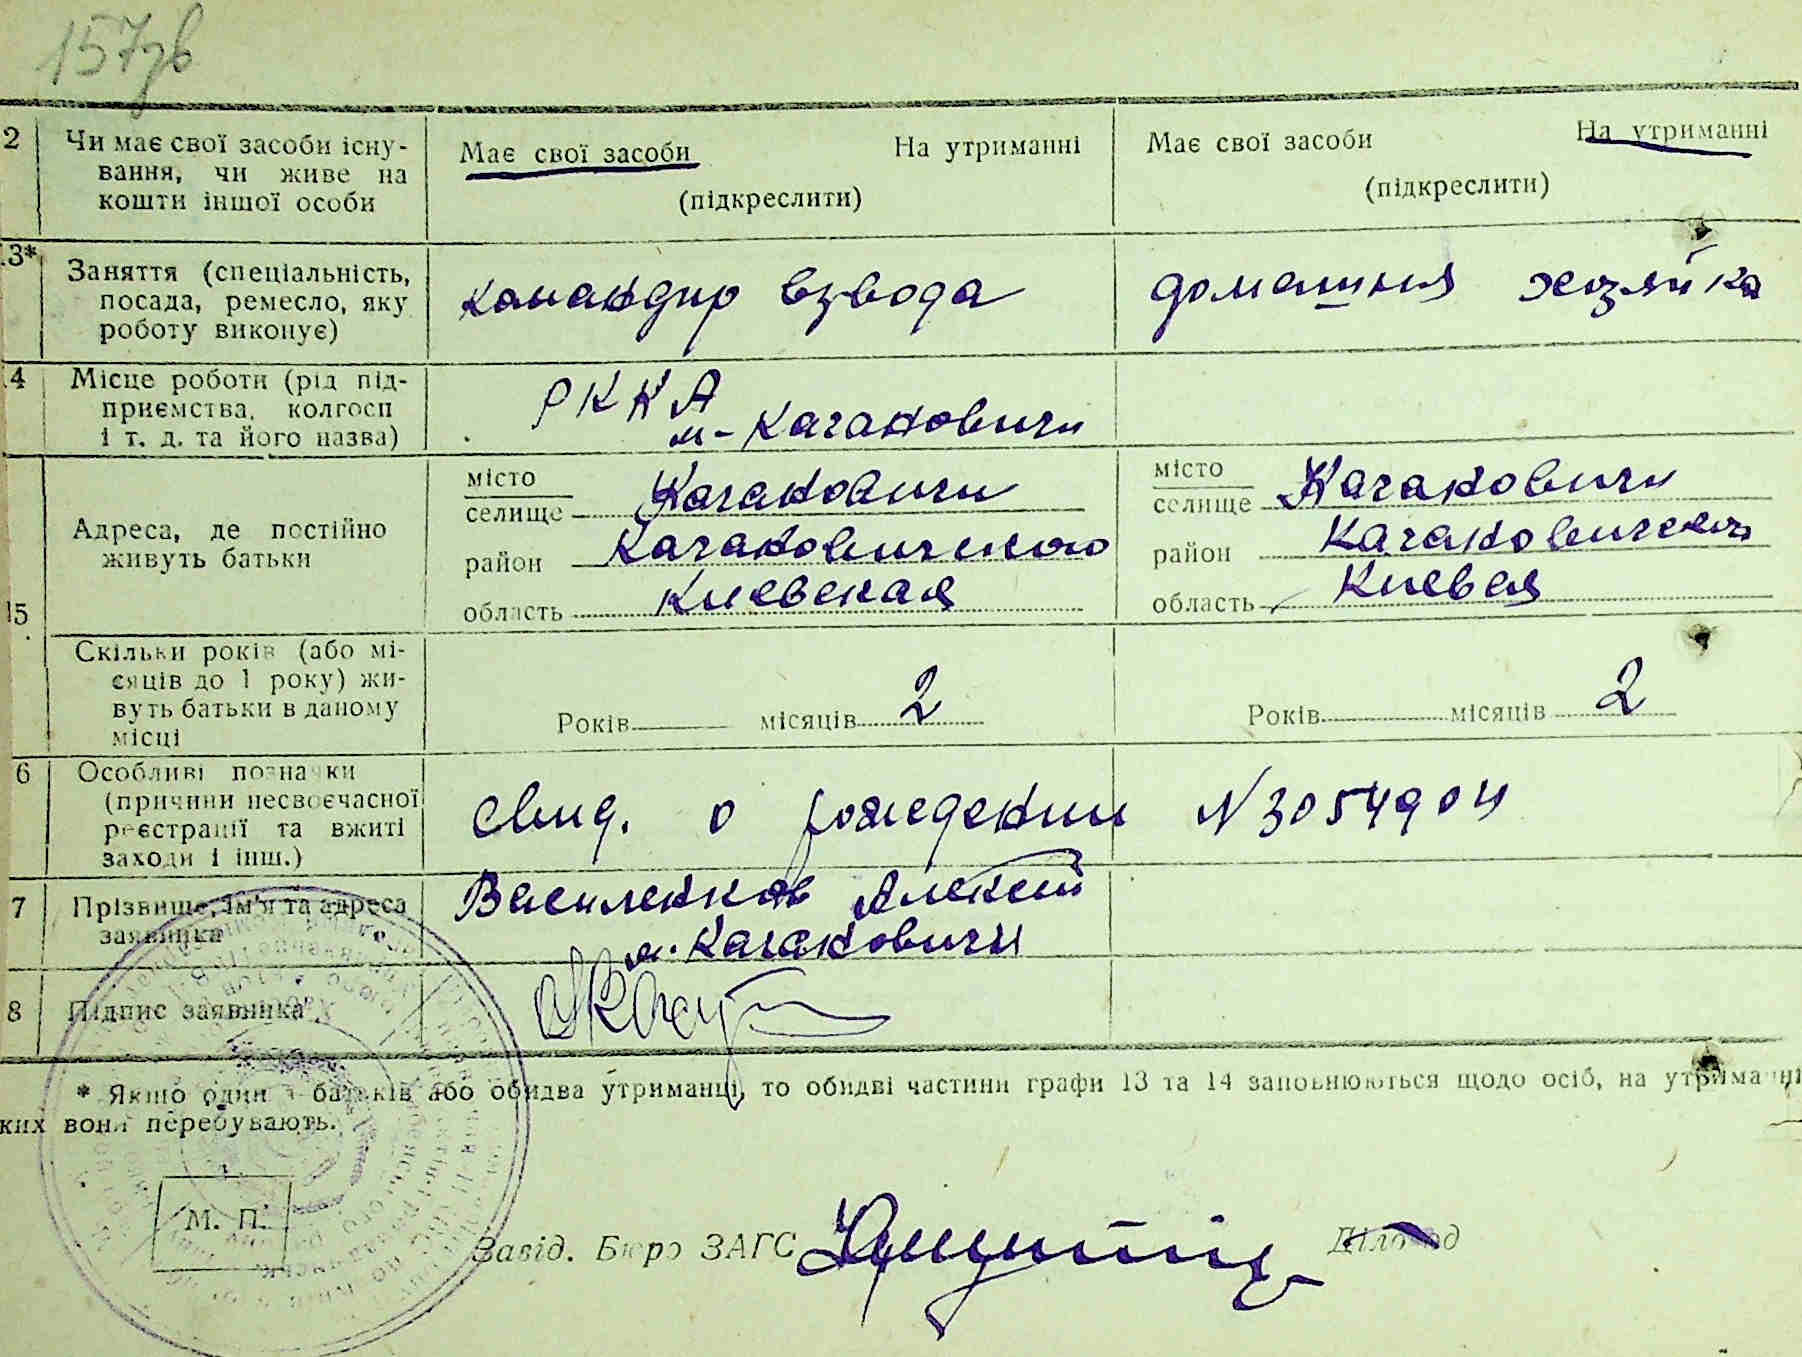 157зв
2 Чи має свої засоби існу- Має свої засоби На утриманні Має свої засоби На утриманні
вання, чи живе на
кошти іншої особи (підкреслити) (підкреслити)
13* Заняття (спеціальність, командир взвода домашняя хозяйка
посада, ремесло, яку
роботу виконує)
14 Місце роботи (рід під- РККА
приємства, колгосп м-Кагановичи
і т. д. та його назва)
місто місто
селище Кагановичи селище Кагановичи
Адреса, де постійно
живуть батьки район Кагановичского район
область Киевская область Киевская
15
Скільки років (або мі-
сяців до 1 року) жи-
вуть батьки в даному Років місяців 2 Років місяців 2
місці
6 Особливі позначки
(причини несвоєчасної свид. о рождении N3054904
реєстрації та вжиті
заходи і інш.)
7 Прізвище, ім'я та адреса Василенков Алексей
заявника м. Кагановичи
8 Підпис заявника
* Якщо один з батьків або обидва утриманці, то обидві частини графи 13 та 14 заповнюються щодо осіб, на утриманні
ких вони перебувають.
М. П.
Завід. Бюро ЗАГС Діловод